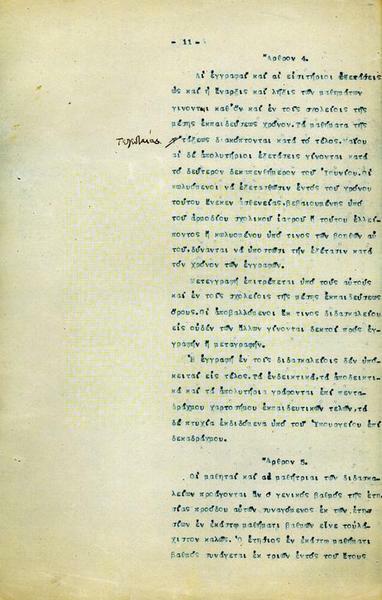 - 11 -
Ἄρθρον 4.
Αἱ ἐγγραφαί καί αἱ εἰσιτήριοι ἐξετάσεις
ὡς καί ἡ ἔναρξις καί λῆξις τῶν μαθημάτων
γίνονται καθ' ὅν καί ἐν τοῖς σχολείοις τῆς
μέσης ἐκπαιδεύσεως χρόνον. Τά μαθήματα τῆς
τάξεως διακόπτονται κατά τό τέλος Μαΐου
αἱ δέ ἀπολυτήριοι ἐξετάσεις γίνονται κατά
τό δεύτερον δεκαπενθήμερον τοῦ Ἰουνίου. Οἱ
κωλυόμενοι νά ἐξετασθῶσιν ἐντός τοῦ χρόνου
τούτου ἕνεκεν ἀσθενείας, βεβαιουμένης ὑπό
τοῦ ἁρμοδίου σχολικοῦ ἰατροῦ ἤ τούτου ἐλλεί-
ποντος ἤ κωλυομένου ὑπό τινος τῶν βοηθῶν αὐ
τοῦ, δύνανται νά ὑποστῶσι τήν ἐξέτασιν κατά
τόν χρόνον τῶν ἐγγραφῶν.
Μετεγγραφή ἐπιτρέπεται ὑπό τούς αὐτούς
καί ἐν τοῖς σχολείοις τῆς μέσης ἐκπαιδεύσεως
ὅρους. Οἱ ἀποβαλλόμενοι ἔκ τινος διδασκαλείου
εἰς οὐδέν τῶν ἄλλων γίνονται δεκτοί πρός ἐγ-
γραφήν ἤ μεταγραφήν.
Ἡ ἐγγραφή ἐν τοῖς διδασκαλείοις δέν ὑπό-
κειται εἰς τέλος. Τά ἐνδεικτικά, τά ἀποδεικτι-
κά καί τά ἀπολυτήρια γράφονται ἐπί πεντα-
δράχμου χαρτοσήμου ἐκπαιδευτικῶν τελῶν, τά
δέ πτυχία ἐκδιδόμενα ὑπό τοῦ Ὑπουργείου ἐπί
δεκαδράχμου.
Ἄρθρον 5.
Οἱ μαθηταί καί αἱ μαθήτριαι τῶν διδασκα-
λείων προάγονται ἄν ὁ γενικός βαθμός τῆς ἐτη-
σίας προόδου αὐτῶν συναγόμενος ἐκ τῶν ἐτη-
σίων ἐν ἑκάστῳ μαθήματι βαθμῶν εἶνε τοὐλά-
χιστον καλῶς. Ὁ ἐτήσιος ἐν ἑκάστῳ μαθήματι
βαθμός συνάγεται ἐκ τριῶν ἐντός τοῦ ἔτους